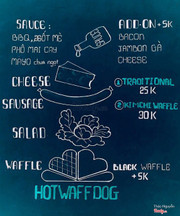 SAUCE :
BBQ, SỐT MÈ
PHÔ MAI CAY
MAYO chua ngọt
ADD-ON +5K
BACON
JAMBON ĐÀ
CHEESE
CHEESE
SAUSAGE
① TRADITIONAL
25K
② KIMCHI WAFFLE
30K
SALAD
WAFFLE
BLACK WAFFLE
+5K
HOTWAFFDOG